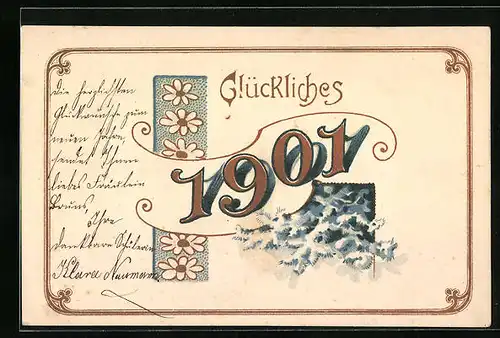 Glückliches
1901
Die herzlichsten
Glückwünsche zum
neuen Jahre
sendet Ihnen
liebes Fräulein
Bruns,
Ihre
dankbare Schülerin
Klara Neumann